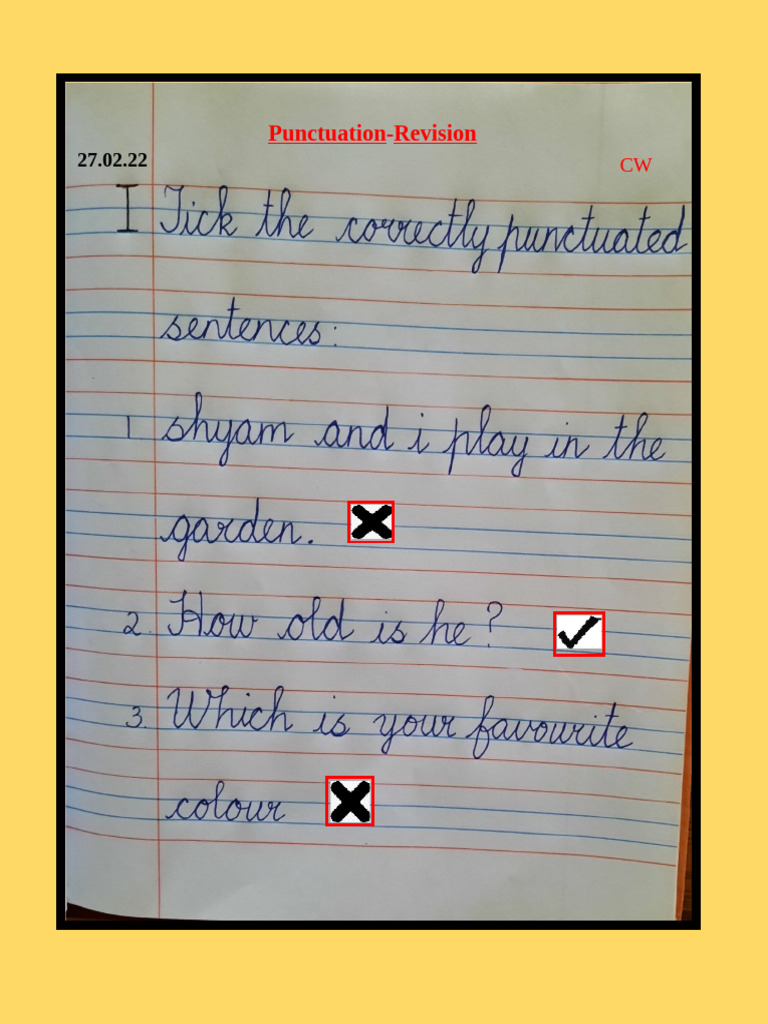 Punctuation-Revision
27.02.22 CW
I Tick the correctly punctuated
sentences:
1. shyam and i play in the
garden.
2. How old is he?
3. Which is your favourite
colour